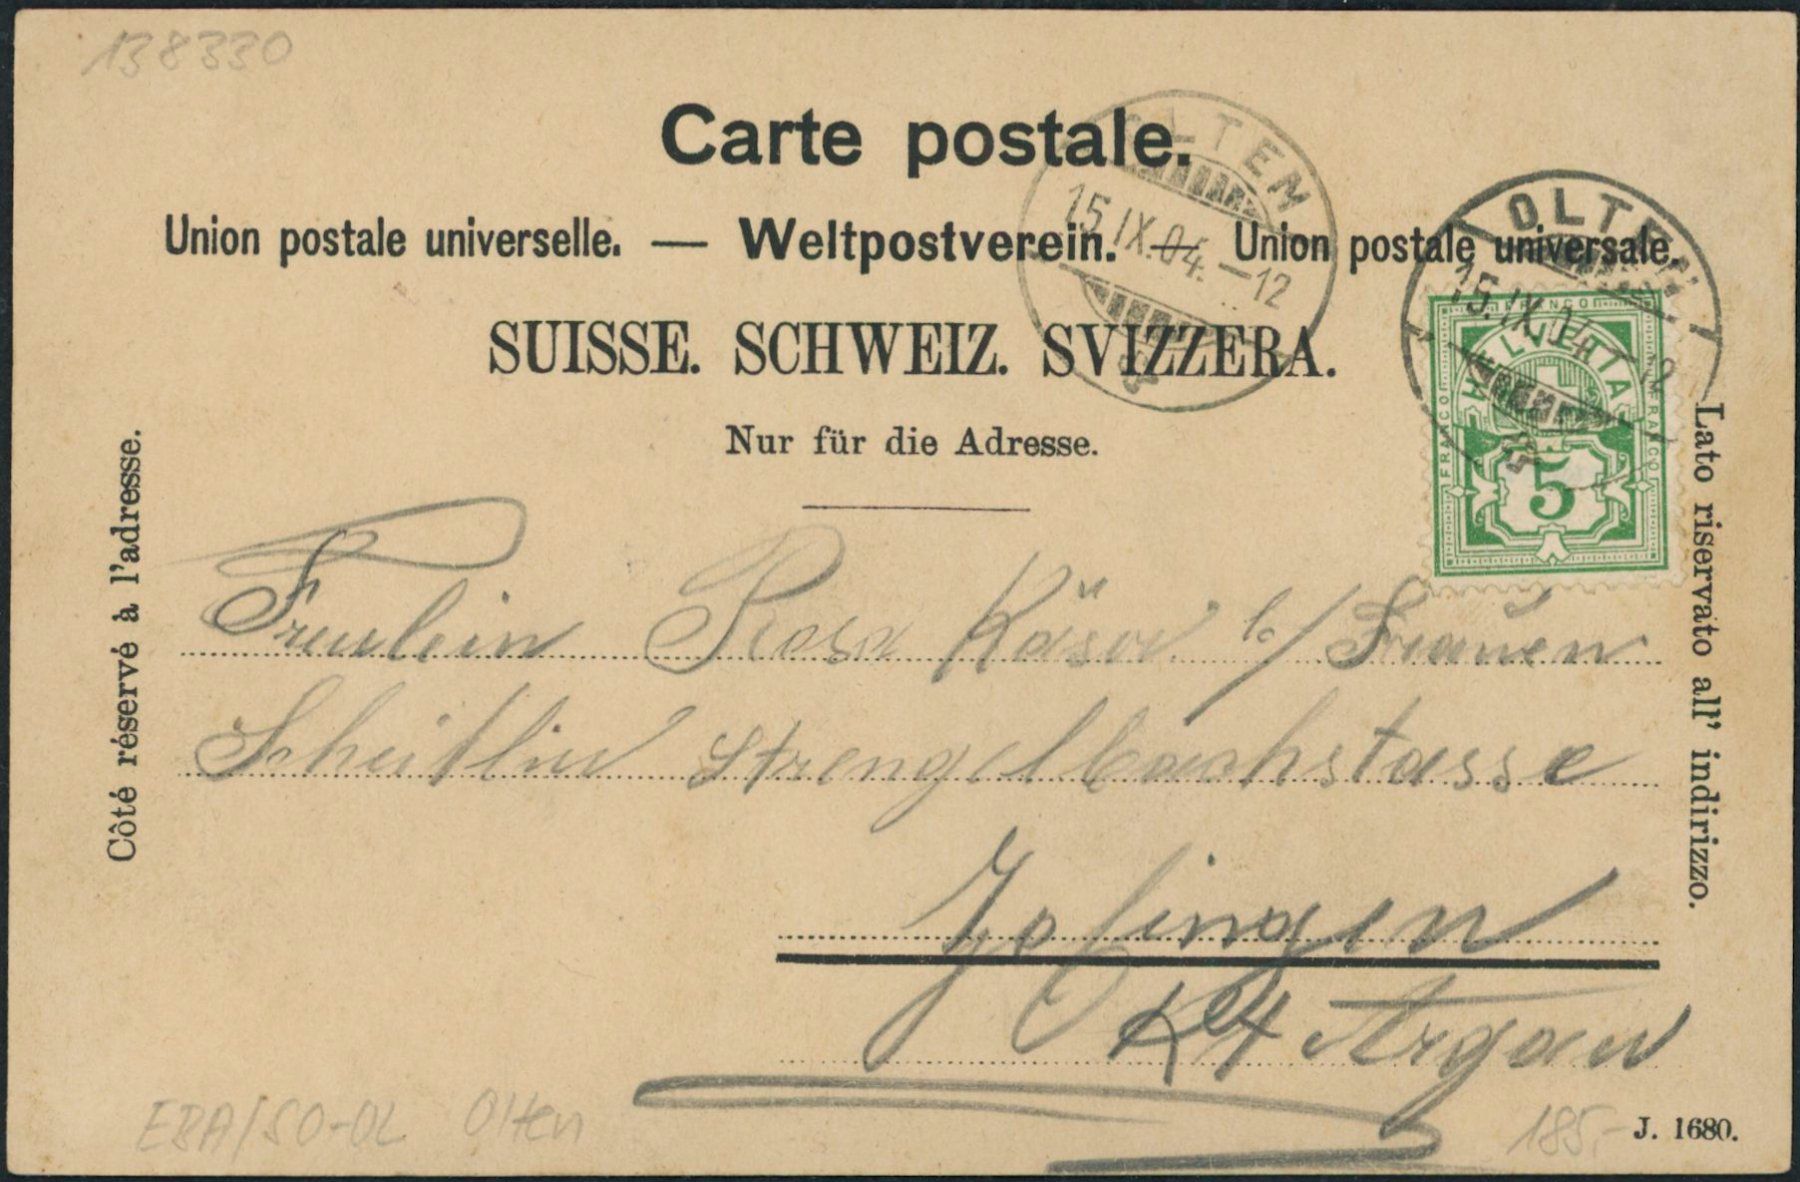 138330
Carte postale.
Union postale universelle. — Weltpostverein. — Union postale universale.
SUISSE. SCHWEIZ. SVIZZERA.
Nur für die Adresse.
OLTEN
15.IX.04.–12
OLTEN
15.IX.04.–12
FRANCO
HELVETIA
FRANCO
FRANCO
5
Côté réservé à l'adresse.
Lato riservato all' indirizzo.
Freulein Rosa b/ Frauen
Scheitlin Strengelbachstasse
Zofingen
Kt Argau
EBA/SO-OL Olten
185.-
J. 1680.